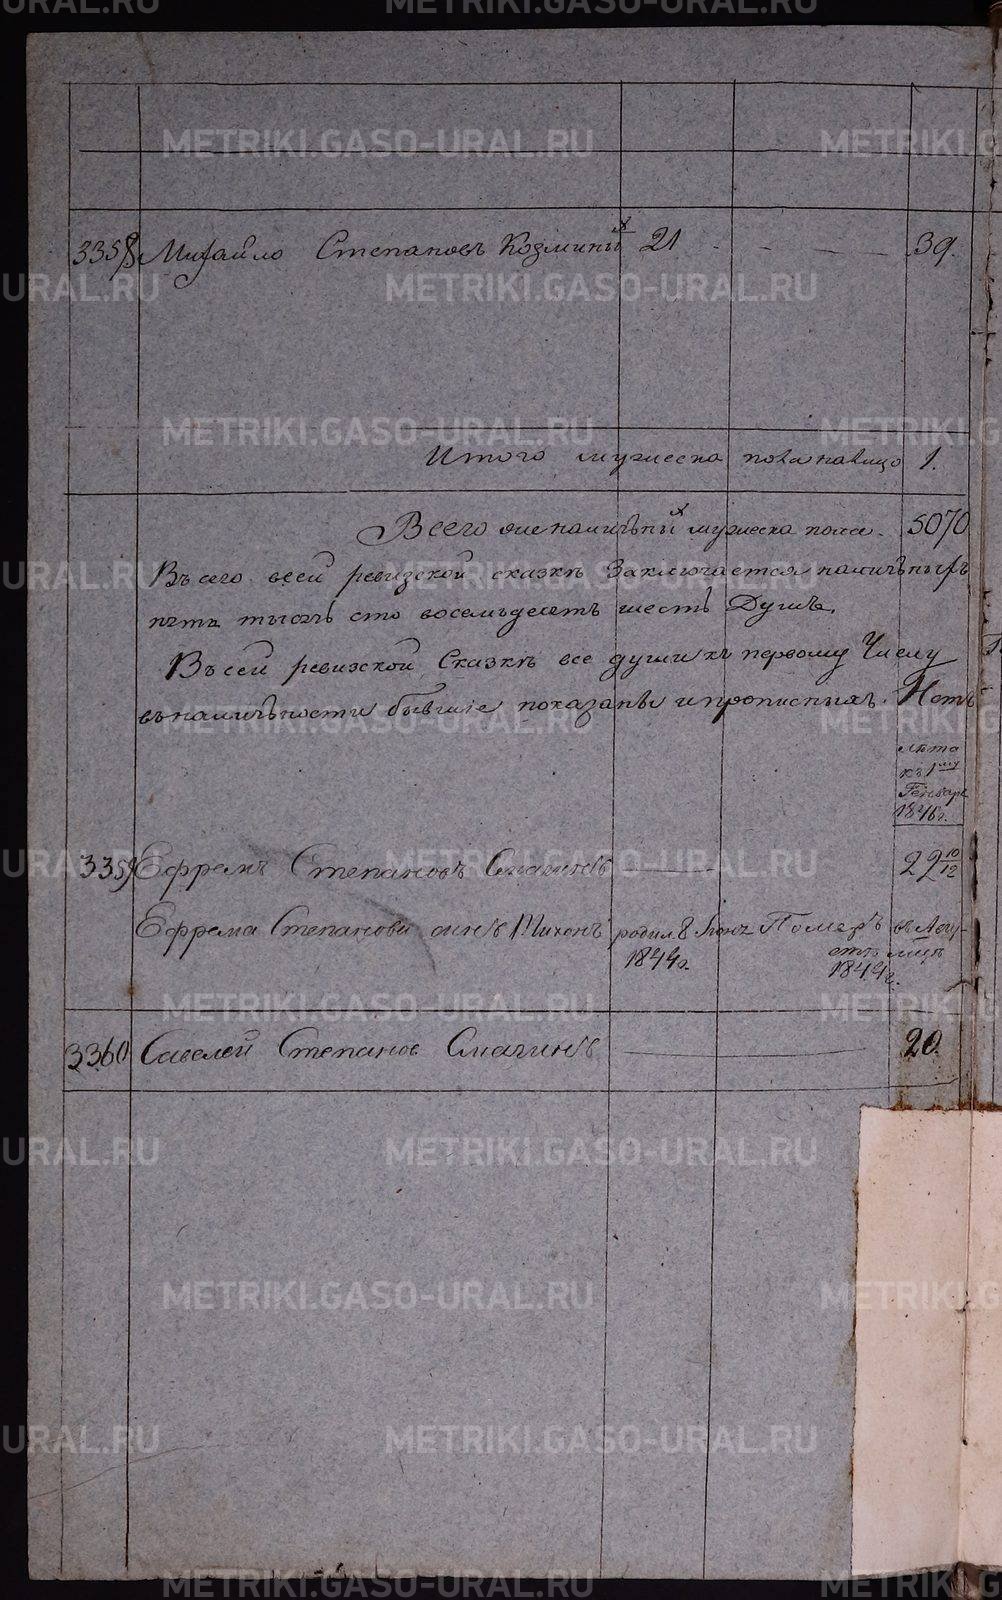 3358 Михайло Степановъ Козминых 21 39.
Итого мужеска пола налицо 1.
Всего наличных мужеска пола. 5070
Въ сего всей ревизской сказкѣ Заключается наличныхъ
пять тысячь сто восемьдесятъ шесть Душъ.
Въ сей ревизской Сказкѣ все души къ первому Числу
въ наличности бывшіе показаны и прописныхъ. Нетъ
лѣта
къ 1му
Генваря
1846г.
3359 Ефремъ Степановъ Смагинъ 22 10/12
Ефрема Степанова синъ Тихонъ родил. Померъ въ Авгу-
1844г. стѣ мцѣ
1844г.
3360 Савелей Степанов Смагинъ 20.
METRIKI.GASO-URAL.RU